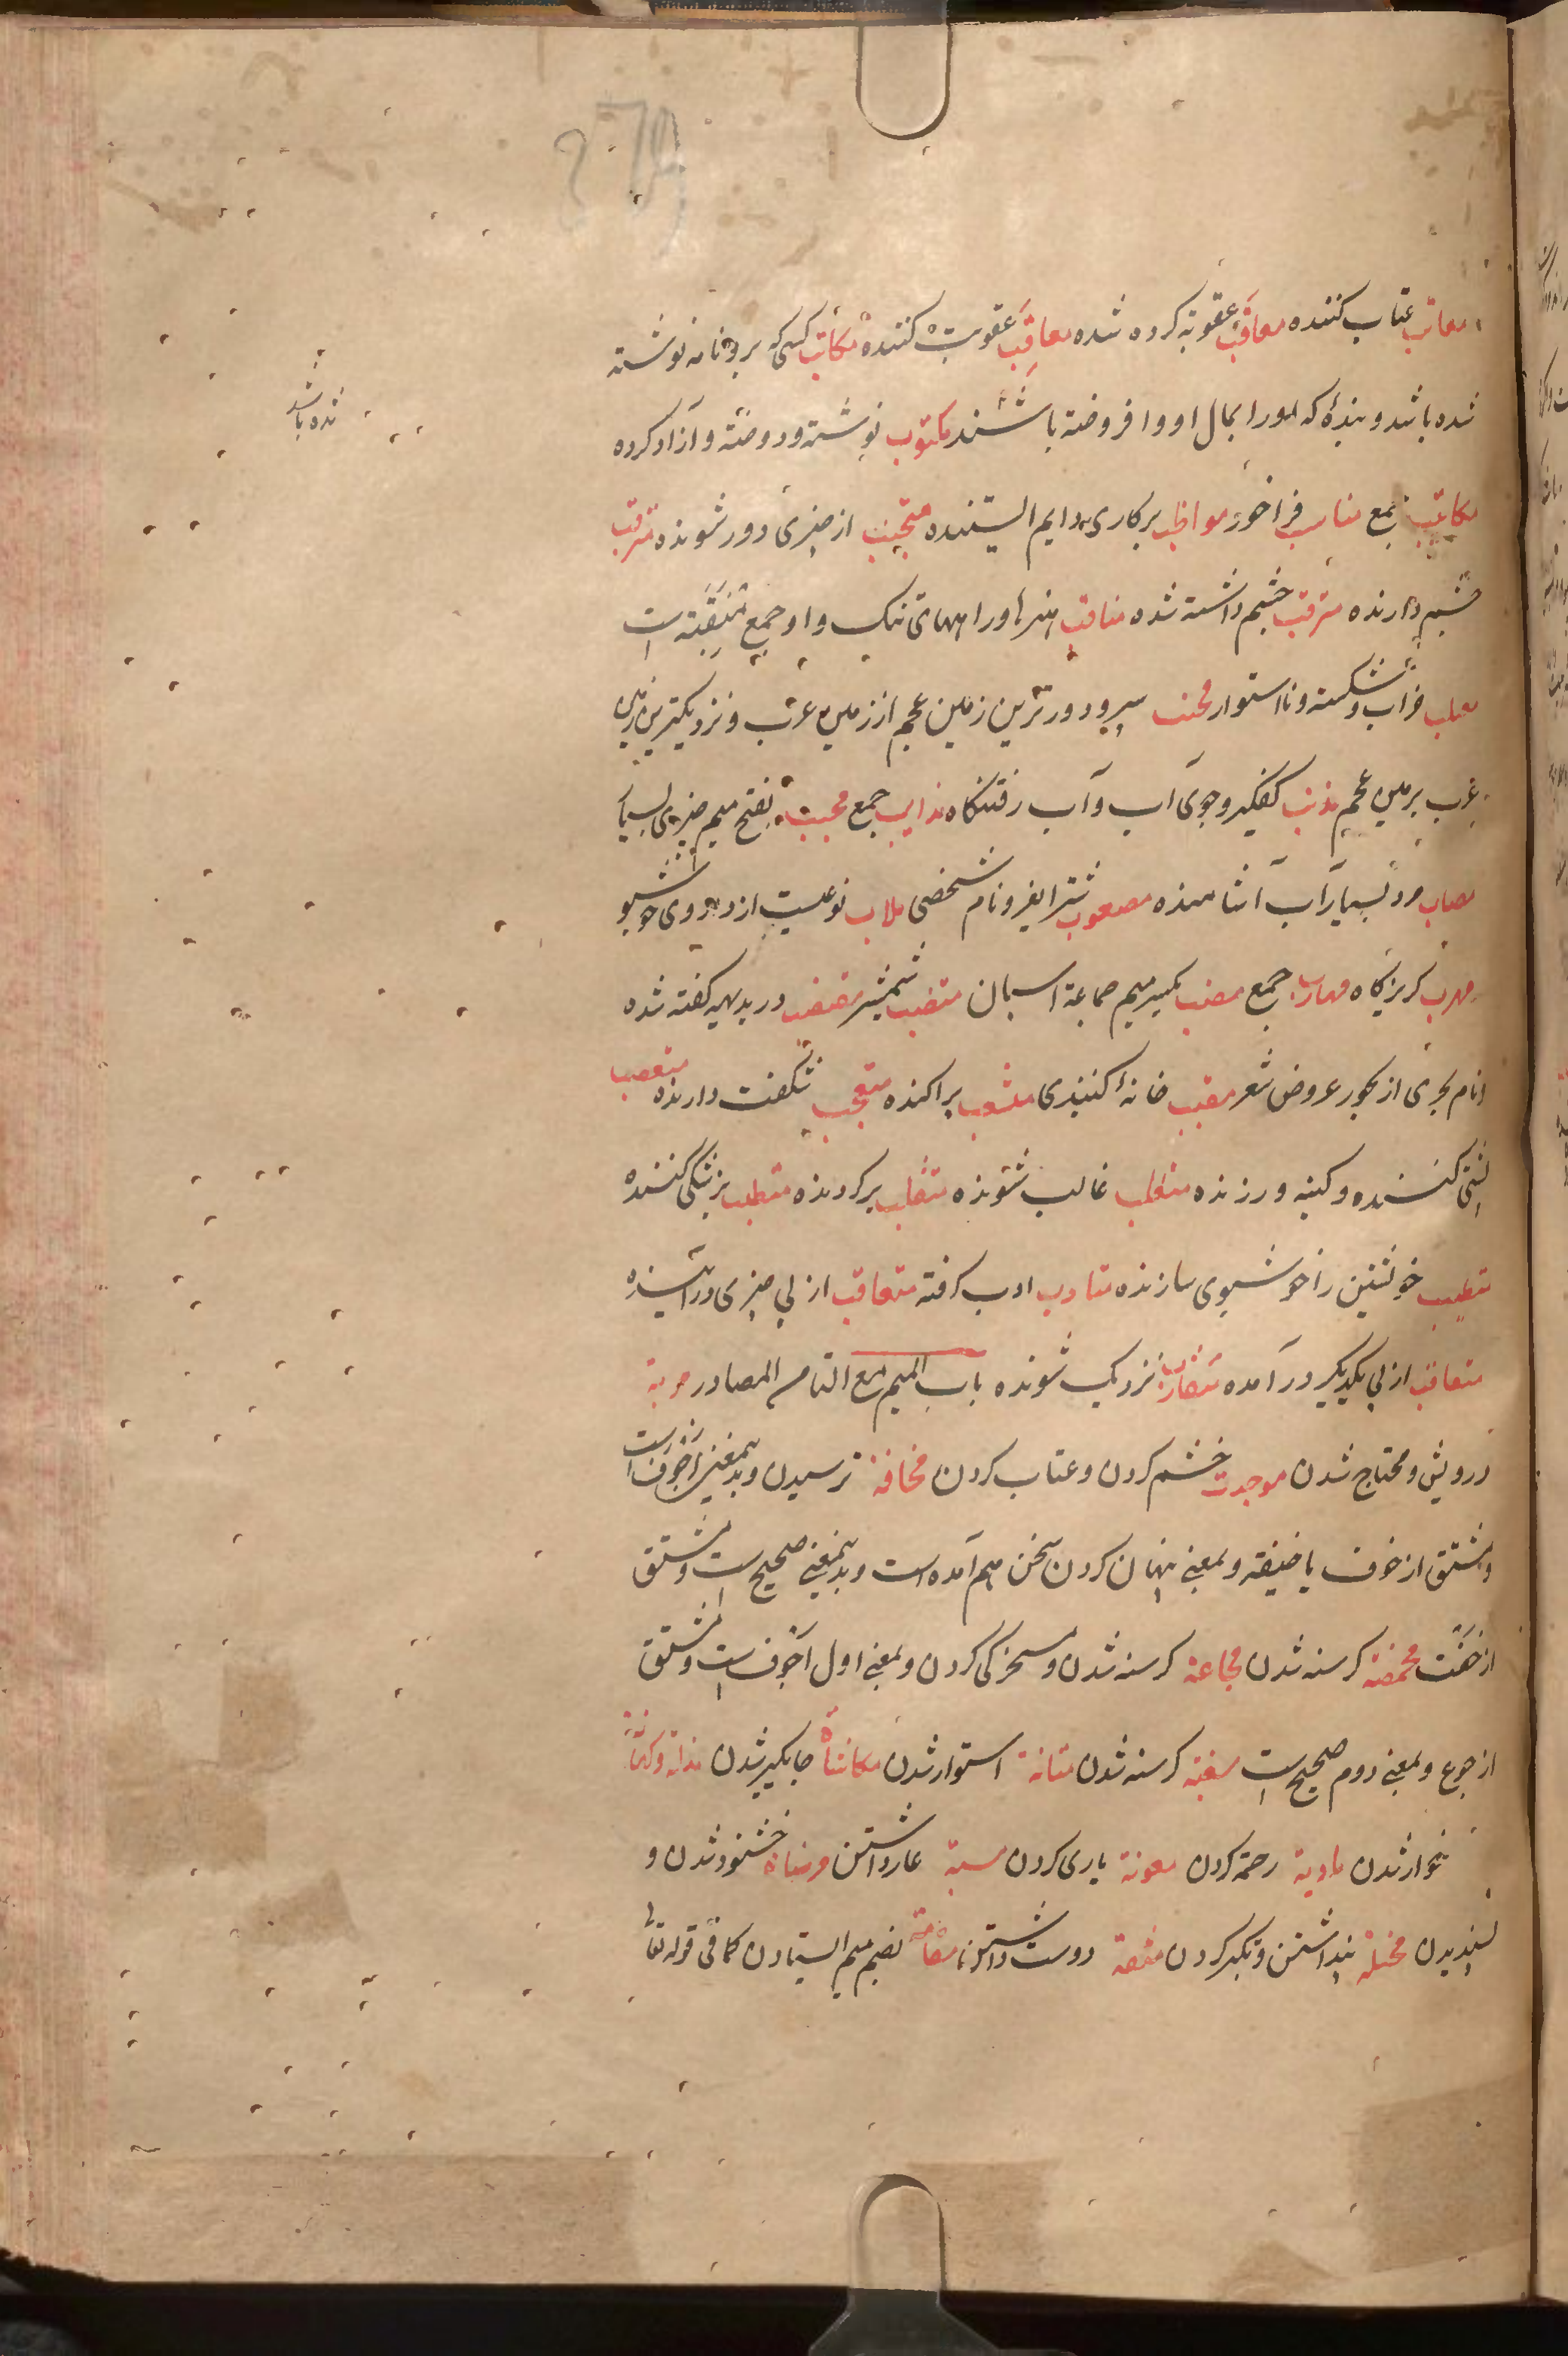 معاتب عتاب کننده معاقَب عقوبة کرده شده معاقِب عقوبت کننده مکاتب کسی که برو نامه نوشته
شده باشد و بندۀ که او را بمال او وا فروخته باشند مکتوب نوشته و دوخته و آزاد کرده
شده باشد
مکاتب جمع مناسب فراخور مواظب برکاری دایم ایستنده متجنب از چیزی دور شونده مترقب
چشم دارنده مترقب چشم داشته شده مناقب هنرها و راههای تنک و او جمع منقبة است
خراب و شکسته و نااستوار محنب سپر و دورترین زمین عجم از زمین عرب و نزدیکترین زمین
عرب بزمین عجم مذنب کفکیر و جوی آب و آب رفتنکاه مذانب جمع بفتح میم چیزی بسیار
مرد بسیار آب آشامنده مصعوب شتر و نام شخصی ملاب نوعیست از داروی خوشبو
مهرب کریزکاه مهارب جمع مقنب بکسر میم جماعة اسبان مقضب شمشیر مقتضب در بدیهه کفته شده
و نام بحری از بحور عروض شعر مقبب خانۀ کنبدی منشعب پراکنده متعجب شکفت دارنده متعصب
پشتی کننده و کینه ورزنده متغلب غالب شونده متقلب برکردنده متطبب بزشکی کننده
متطیب خویشتن را خوشبوی سازنده متادب ادب کرفته متعاقب از پی چیزی درآینده
متعاقب از پی یکدیکر درآمده متقارب نزدیک شونده باب المیم مع التاء من المصادر متربة
درویش و محتاج شدن موجدت خشم کردن و عتاب کردن مخافة ترسیدن و بدینمعنی اجوف است
و مشتق از خوف یا خیفة و بمعنی پنهان کردن سخن هم آمده است و بدینمعنی صحیح است و مشتق
از خفت مخمصة کرسنه شدن مجاعة کرسنه شدن و مسخرکی کردن و بمعنی اول اجوف است و مشتق
از جوع و بمعنی دوم صحیح است مسغبة کرسنه شدن متانة استوار شدن مکانة جایکیر شدن مذلة
خوار شدن ماویة رحمة کردن معونة یاری کردن مسبة عار داشتن مرضاة خشنود شدن و
پسندیدن مخیلة پنداشتن و تکبر کردن مقة دوست داشتن مقامة بضم میم ایستادن کما فی قوله تعا